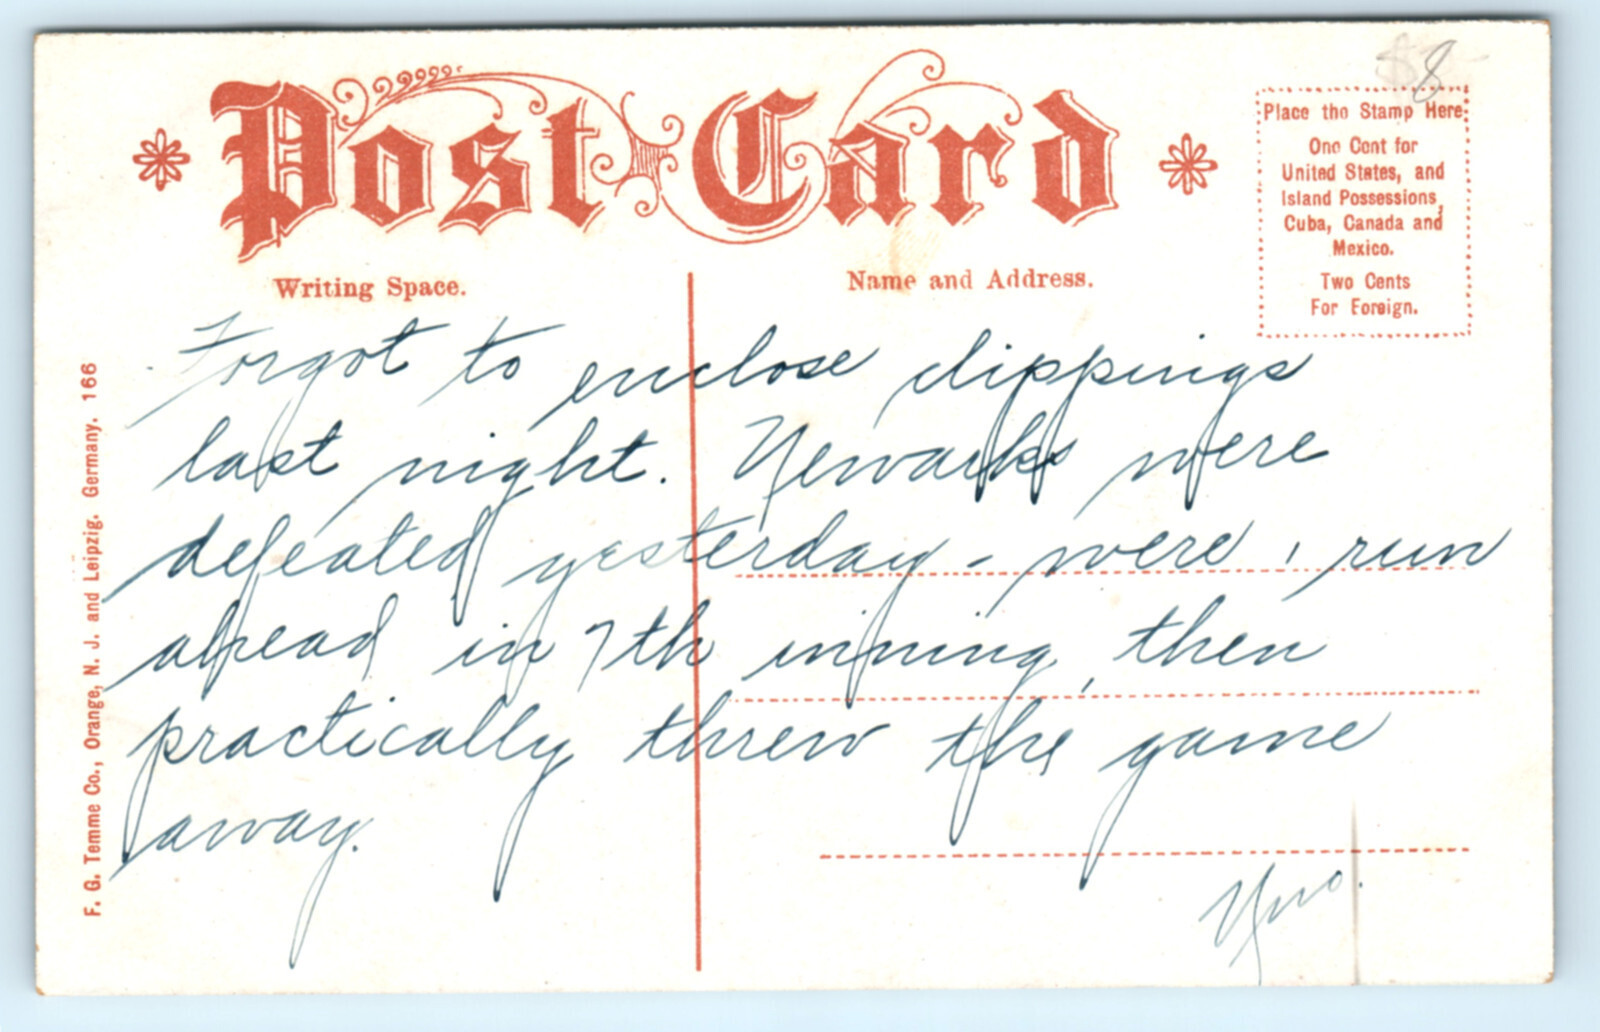 Post Card
Writing Space.
Name and Address.
8
Place the Stamp Here
One Cent for
United States, and
Island Possessions,
Cuba, Canada and
Mexico.
Two Cents
For Foreign.
F. G. Temme Co., Orange, N. J. and Leipzig. Germany. 166
Forgot to enclose clippings
last night. Newarks were
defeated yesterday - were 1 run
ahead in 7th inning, then
practically threw the game
away.